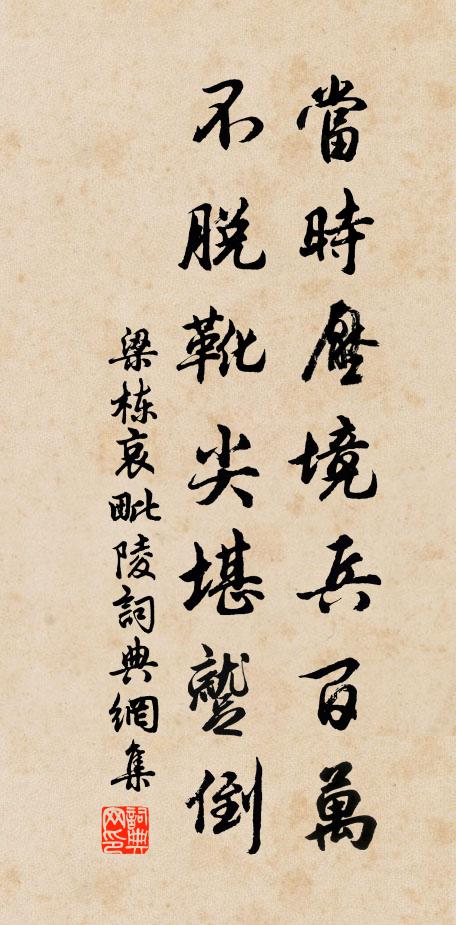 當時壓境兵百萬
不脫靴尖堪蹵倒
梁棟哀毗陵詞典網集
詞典网印